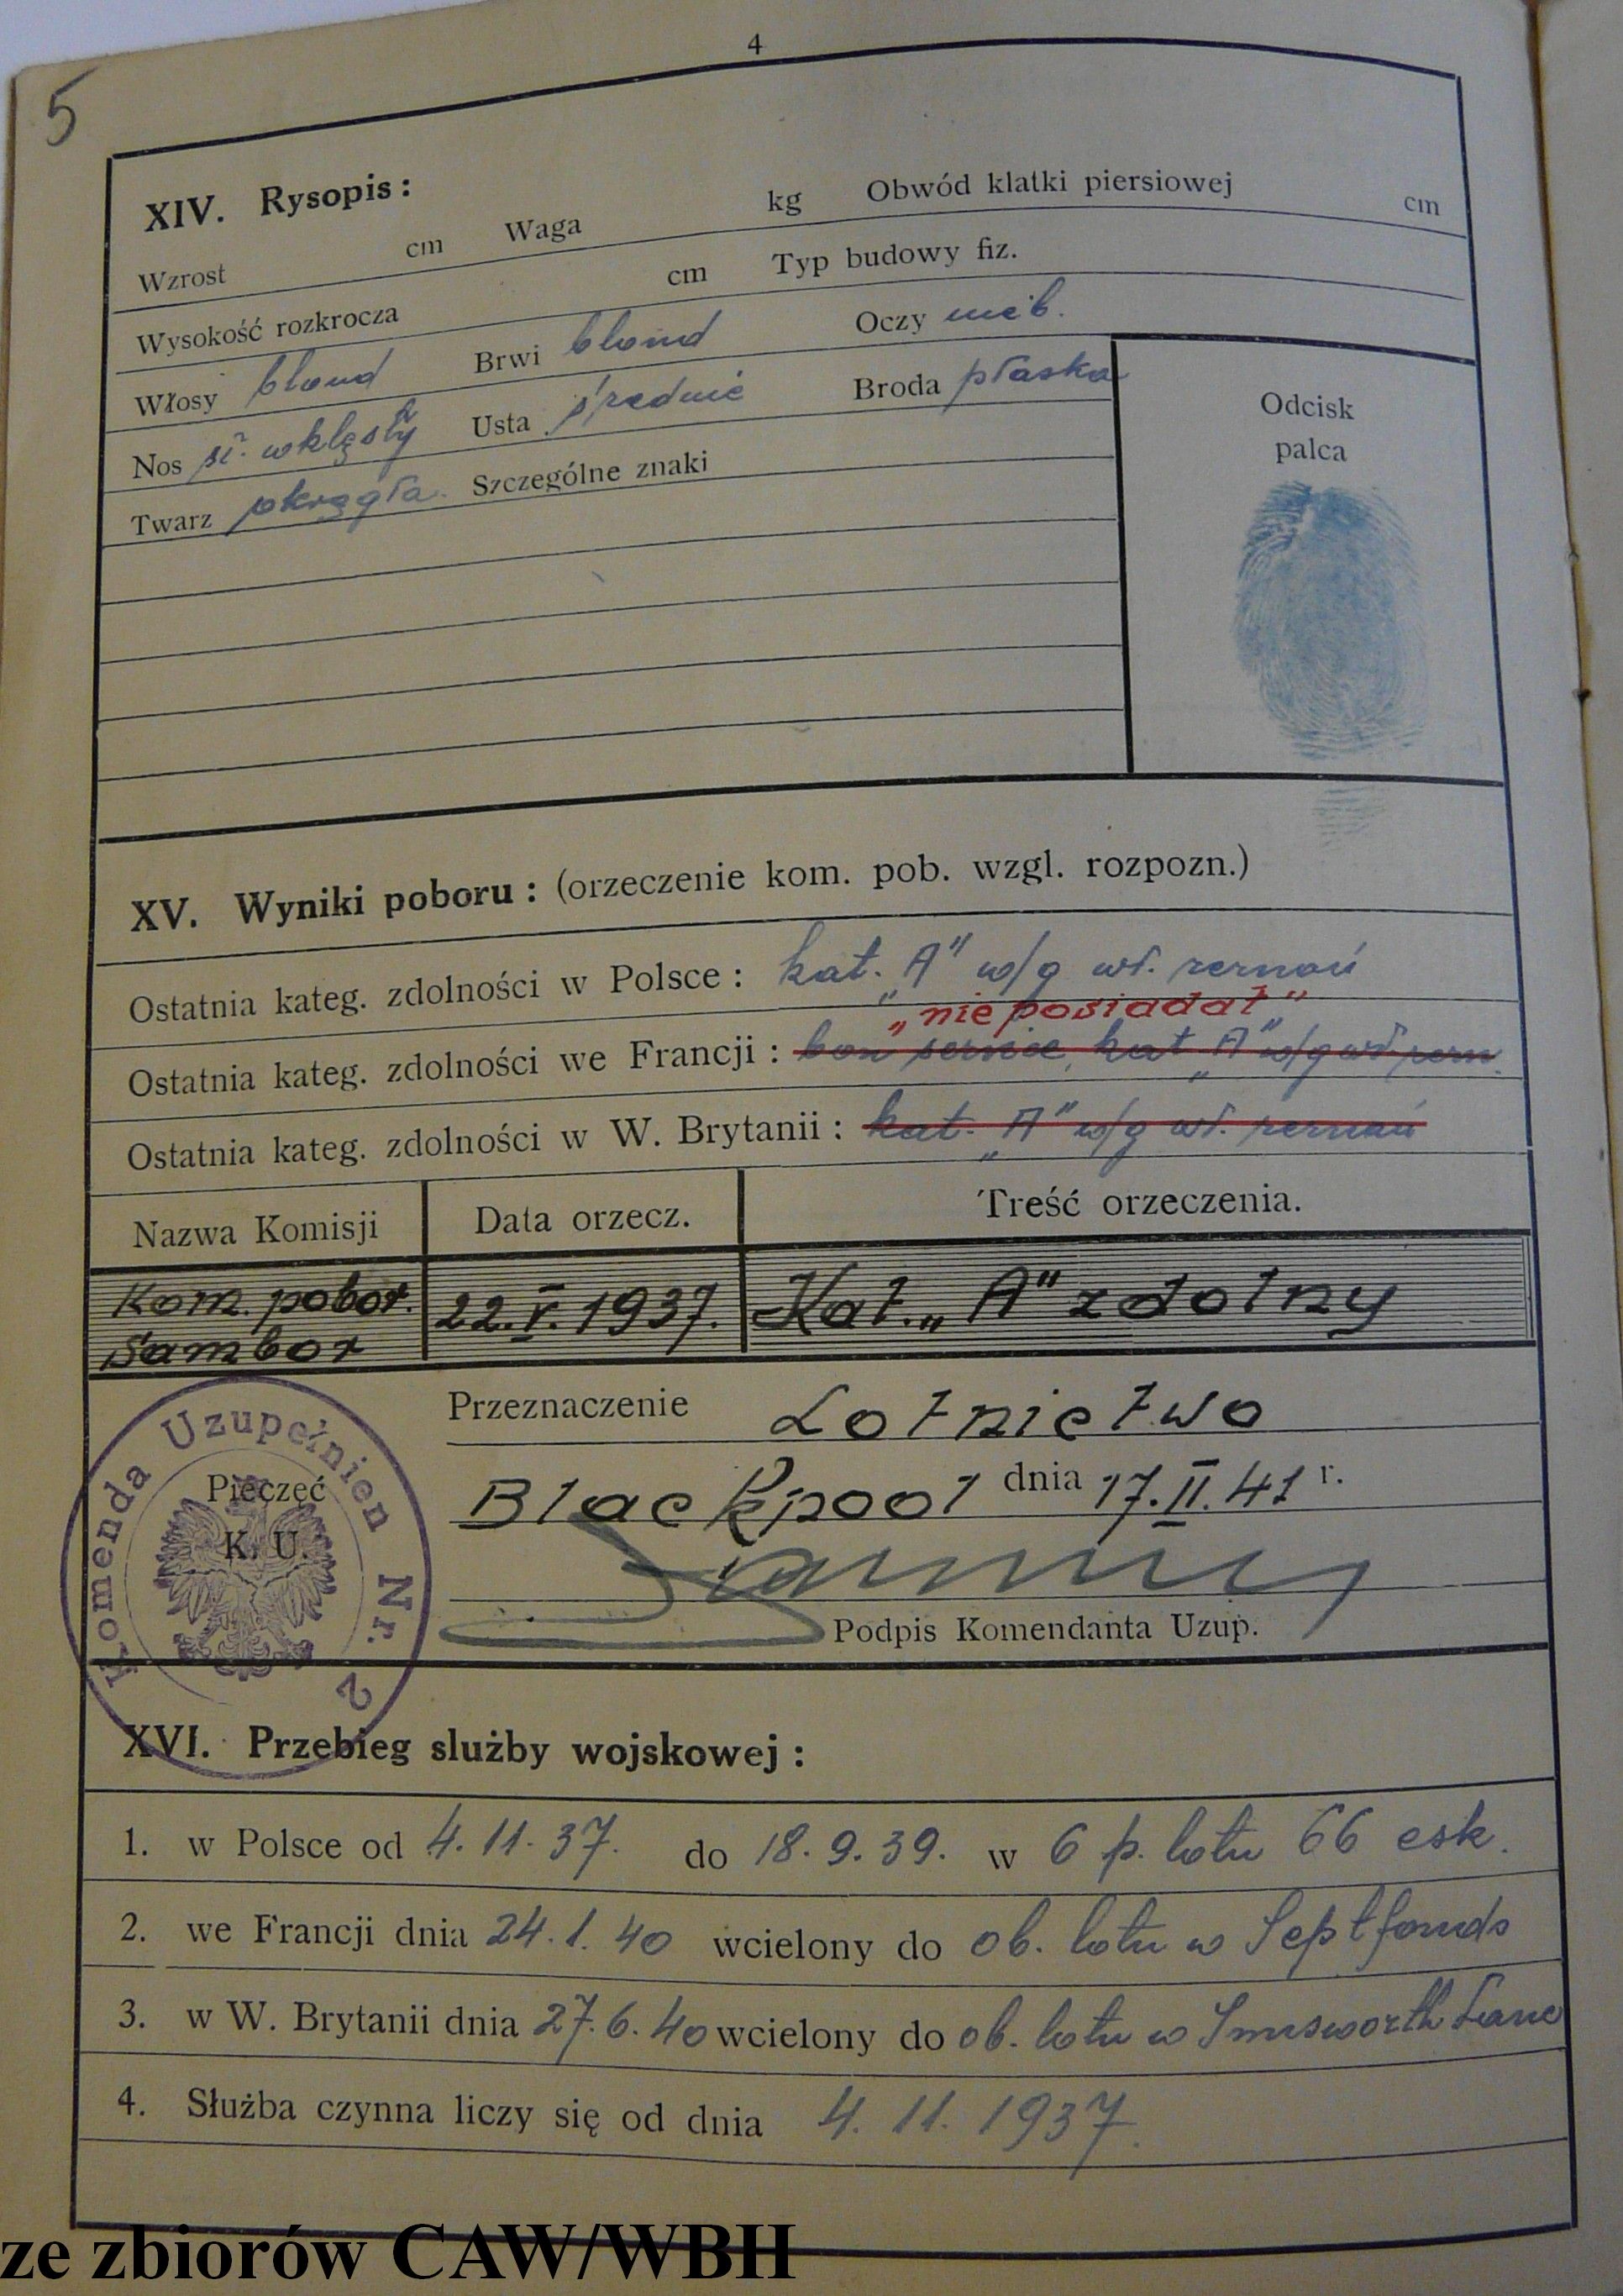 4
5
XIV. Rysopis:
Wzrost cm Waga kg Obwód klatki piersiowej cm
Wysokość rozkrocza cm Typ budowy fiz.
Włosy blond Brwi blond Oczy nieb.
Nos śr. wklęsły Usta średnie Broda płaska
Twarz okrągła. Szczególne znaki
Odcisk
palca
XV. Wyniki poboru: (orzeczenie kom. pob. wzgl. rozpozn.)
Ostatnia kateg. zdolności w Polsce: kat. „A" w/g wł. zeznań
„nie posiadał"
Ostatnia kateg. zdolności we Francji: bon service, kat „A" w/g wł. zezn.
Ostatnia kateg. zdolności w W. Brytanii: kat. „A" w/g wł. zeznań
Nazwa Komisji Data orzecz. Treść orzeczenia.
Kom. pobor. 22.V.1937. Kat. „A" zdolny
Sambor
Przeznaczenie Lotnictwo
Blackpool dnia 17.II.41 r.
Pieczęć
K. U.
Komenda Uzupełnien Nr. 2
Podpis Komendanta Uzup.
XVI. Przebieg służby wojskowej:
1. w Polsce od 4.11.37. do 18.9.39. w 6 p. lotn 66 esk.
2. we Francji dnia 24.1.40 wcielony do ob. lotn w Septfonds
3. w W. Brytanii dnia 27.6.40 wcielony do ob. lotn w
4. Służba czynna liczy się od dnia 4.11.1937.
ze zbiorów CAW/WBH